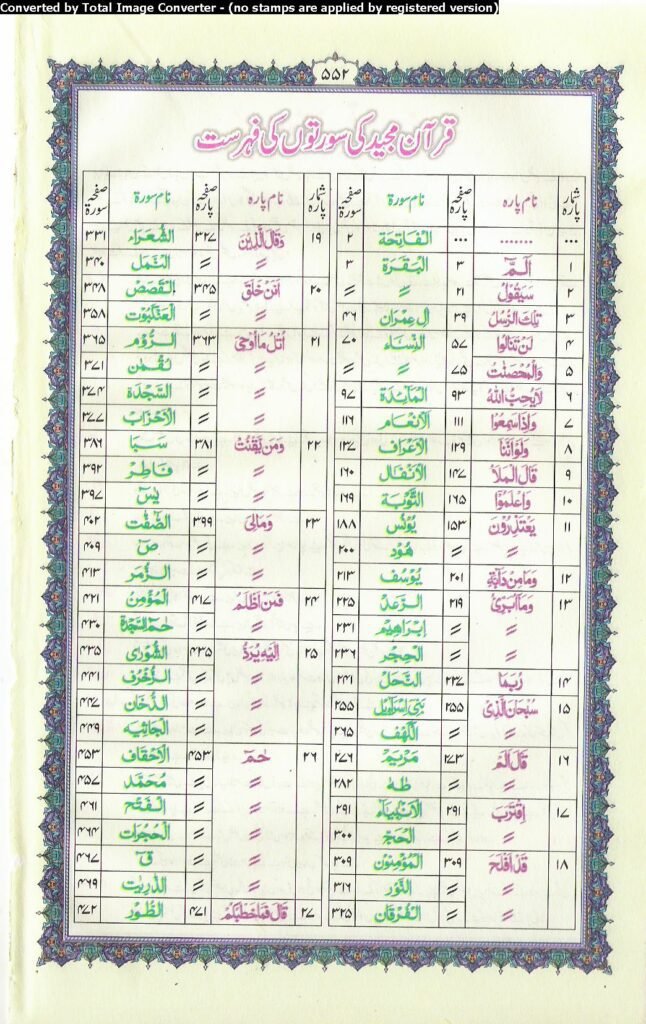 Converted by Total Image Converter - (no stamps are applied by registered version)
۵۵۲
قرآن مجید کی سورتوں کی فہرست
شمار پارہ نام پارہ صفحہ پارہ نام سورۃ صفحہ سورۃ
... ....... ... الفَاتِحَة ۲
۱ الٓمّٓ ۳ البُقَرَة ۳
۲ سَيَقُوْلُ ۲۱ 〃 〃
۳ تِلْكَ الرُّسُلُ ۳۹ اٰلِ عِمْرَان ۴۶
۴ لَنْ تَنَالُوا ۵۷ النِّسَاء ۷۰
۵ وَالْمُحْصَنٰتُ ۷۵ 〃 〃
۶ لَا يُحِبُّ اللهُ ۹۳ المَآئِدَة ۹۷
۷ وَاِذَا سَمِعُوْا ۱۱۱ الْاَنْعَام ۱۱۶
۸ وَلَوْ اَنَّنَا ۱۲۹ الْاَعْرَاف ۱۳۷
۹ قَالَ الْمَلَأُ ۱۴۷ الْاَنْفَال ۱۶۰
۱۰ وَاعْلَمُوْا ۱۶۵ التَّوْبَة ۱۶۹
۱۱ يَعْتَذِرُوْنَ ۱۵۳ يُوْنُس ۱۸۸
〃 〃 هُوْد ۲۰۰
۱۲ وَمَا مِنْ دَآبَّةٍ ۲۰۱ يُوْسُف ۲۱۳
۱۳ وَمَا اُبَرِّئُ ۲۱۹ الرَّعْد ۲۲۵
〃 〃 اِبْرَاهِيْم ۲۳۱
〃 〃 الحِجْر ۲۳۶
۱۴ رُبَمَا ۲۳۷ النَّحْل ۲۴۱
۱۵ سُبْحَانَ الَّذِيْ ۲۵۵ بَنِيْ اِسْرَاءِيْل ۲۵۵
〃 〃 الْكَهْف ۲۶۵
۱۶ قَالَ اَلَمْ ۲۷۳ مَرْيَم ۲۷۶
〃 〃 طٰهٰ ۲۸۲
۱۷ اِقْتَرَبَ ۲۹۱ الْاَنْبِيَاء ۲۹۱
〃 〃 الْحَجّ ۳۰۰
۱۸ قَدْ اَفْلَحَ ۳۰۹ المُؤْمِنُوْن ۳۰۹
〃 〃 النُّوْر ۳۱۶
〃 〃 الْفُرْقَان ۳۲۵
شمار پارہ نام پارہ صفحہ پارہ نام سورۃ صفحہ سورۃ
۱۹ وَقَالَ الَّذِيْنَ ۳۲۷ الشُّعَرَاء ۳۳۱
〃 〃 النَّمْل ۳۴۰
۲۰ اَمَّنْ خَلَقَ ۳۴۵ الْقَصَص ۳۴۸
〃 〃 الْعَنْكَبُوْت ۳۵۸
۲۱ اُتْلُ مَا اُوْحِيَ ۳۶۳ الرُّوْم ۳۶۵
〃 〃 لُقْمٰن ۳۷۱
〃 〃 السَّجْدَة ۳۷۴
〃 〃 الْاَحْزَاب ۳۷۷
۲۲ وَمَنْ يَّقْنُتْ ۳۸۱ سَبَا ۳۸۶
〃 〃 فَاطِر ۳۹۲
〃 〃 يٰسٓ ۳۹۷
۲۳ وَمَالِيَ ۳۹۹ الصّٰفّٰت ۴۰۲
〃 〃 صٓ ۴۰۹
〃 〃 الزُّمَر ۴۱۳
۲۴ فَمَنْ اَظْلَمُ ۴۱۷ الْمُؤْمِنُ ۴۲۱
〃 〃 حٰمٓ السَّجْدَة ۴۳۰
۲۵ اِلَيْهِ يُرَدُّ ۴۳۵ الشُّوْرٰى ۴۳۵
〃 〃 الزُّخْرُف ۴۴۱
〃 〃 الدُّخَان ۴۴۷
〃 〃 الْجَاثِيَة ۴۴۹
۲۶ حٰمٓ ۴۵۳ الْاَحْقَاف ۴۵۳
〃 〃 مُحَمَّد ۴۵۷
〃 〃 الْفَتْح ۴۶۱
〃 〃 الْحُجُرَات ۴۶۴
〃 〃 قٓ ۴۶۷
〃 〃 الذّٰرِيٰت ۴۶۹
۲۷ قَالَ فَمَا خَطْبُكُمْ ۴۷۱ الطُّوْر ۴۷۲